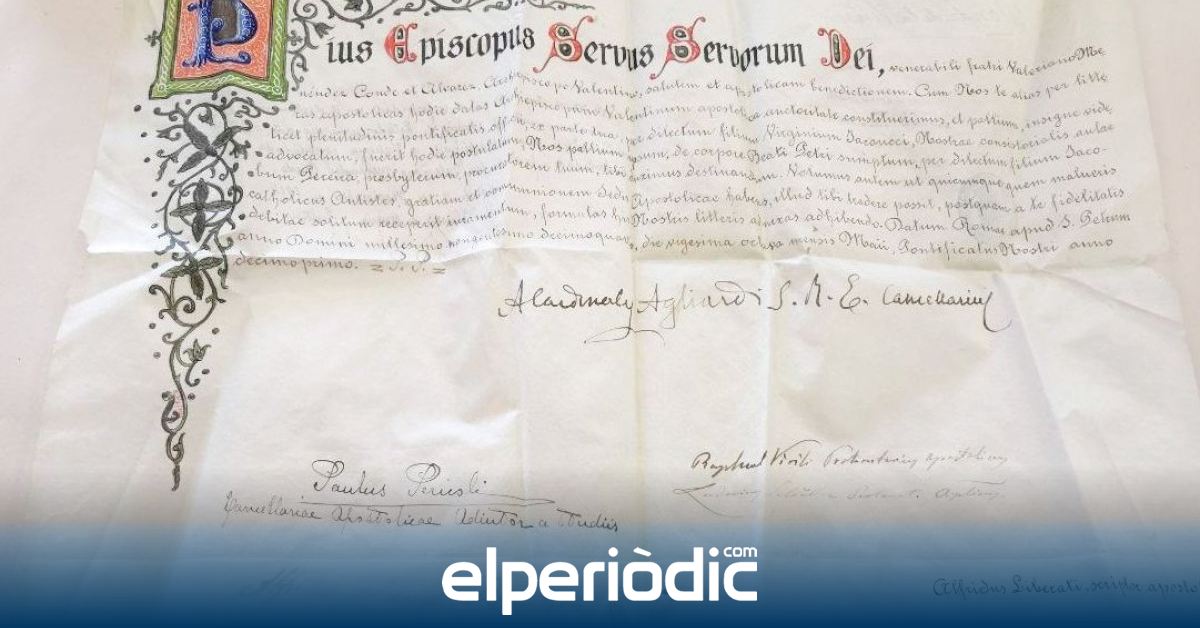 Pius Episcopus Servus Servorum Dei, venerabili fratri Valeriano Me
néndez Conde et Alvarez, Archiepiscopo Valentino, salutem et apostolicam benedictionem. Cum Nos te alias per litte
ras apostolicas hodie datas Archiepiscopum Valentinum apostolica auctoritate constituerimus, et pallium, insigne vide
licet plenitudinis pontificalis officii, ex parte tua, per dilectum filium Virginium Jacoucci, Nostrae consistorialis aulae
advocatum, fuerit hodie postulatum, Nos pallium ipsum, de corpore Beati Petri sumptum, per dilectum filium Jaco-
bum Pereira, presbyterum, procuratorem tuum, tibi duximus destinandum. Volumus autem ut quicumque quem malueris
catholicus Antistes, gratiam et communionem Sedis Apostolicae habens, illud tibi tradere possit, postquam a te fidelitatis
debitae solitum receperit iuramentum, formatas his Nostris litteris curas adhibendo. Datum Romae apud S. Petrum
anno Domini millesimo nongentesimo decimoquarto, die vigesima octava mensis Maii, Pontificatus Nostri anno
decimo primo.
A Cardinalis Agliardi S. R. E. Cancellarius
Raphael Virili Protonotarius apostolicus
Paulus Pericoli
Cancellariae Apostolicae Adiutor a Studiis
Alfridus Liberati, scriptor aposto
elperiòdic.com